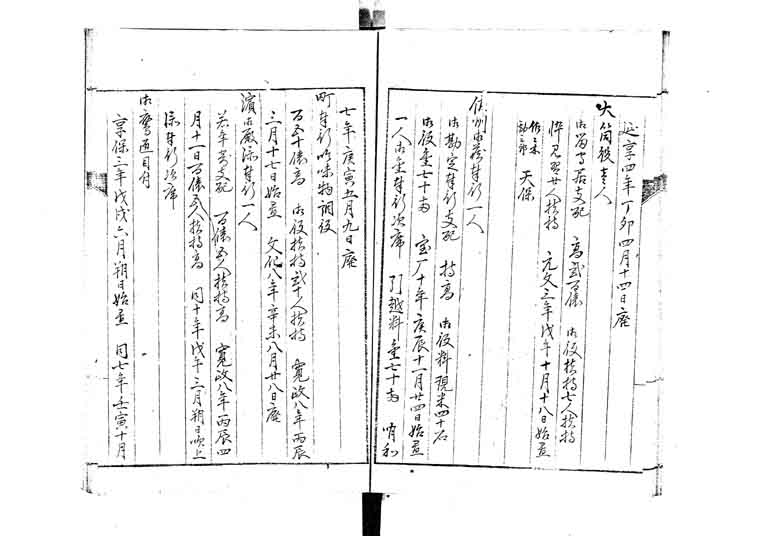 延享四年丁卯四月十四日廃
大筒役壱人
御留守居支配 高弐百俵 御役扶持七人扶持
悴見習廿人扶持 元文三年戊午十月十八日始置
天保
信州御蔵奉行一人
御勘定奉行支配 持高 御役料現米四十石
御役金七十両 宝厂十年庚辰十一月廿四日始置
一人御金奉行次席 引越料 金七十両 明和
七年庚寅五月九日廃
町奉行吟味物調役
百五十俵高 御役扶持弐十人扶持 寛政八年丙辰
三月十七日始置 文化八年辛未八月廿八日廃
濱御殿添奉行一人
若年寄支配 百俵五人扶持高 寛政八年丙辰四
月十一日百俵五人扶持高 同十年戊午三月朔日吹上
添奉行次席
御鷹道目付
享保三年戊戌六月朔日始置 同七年壬寅十月